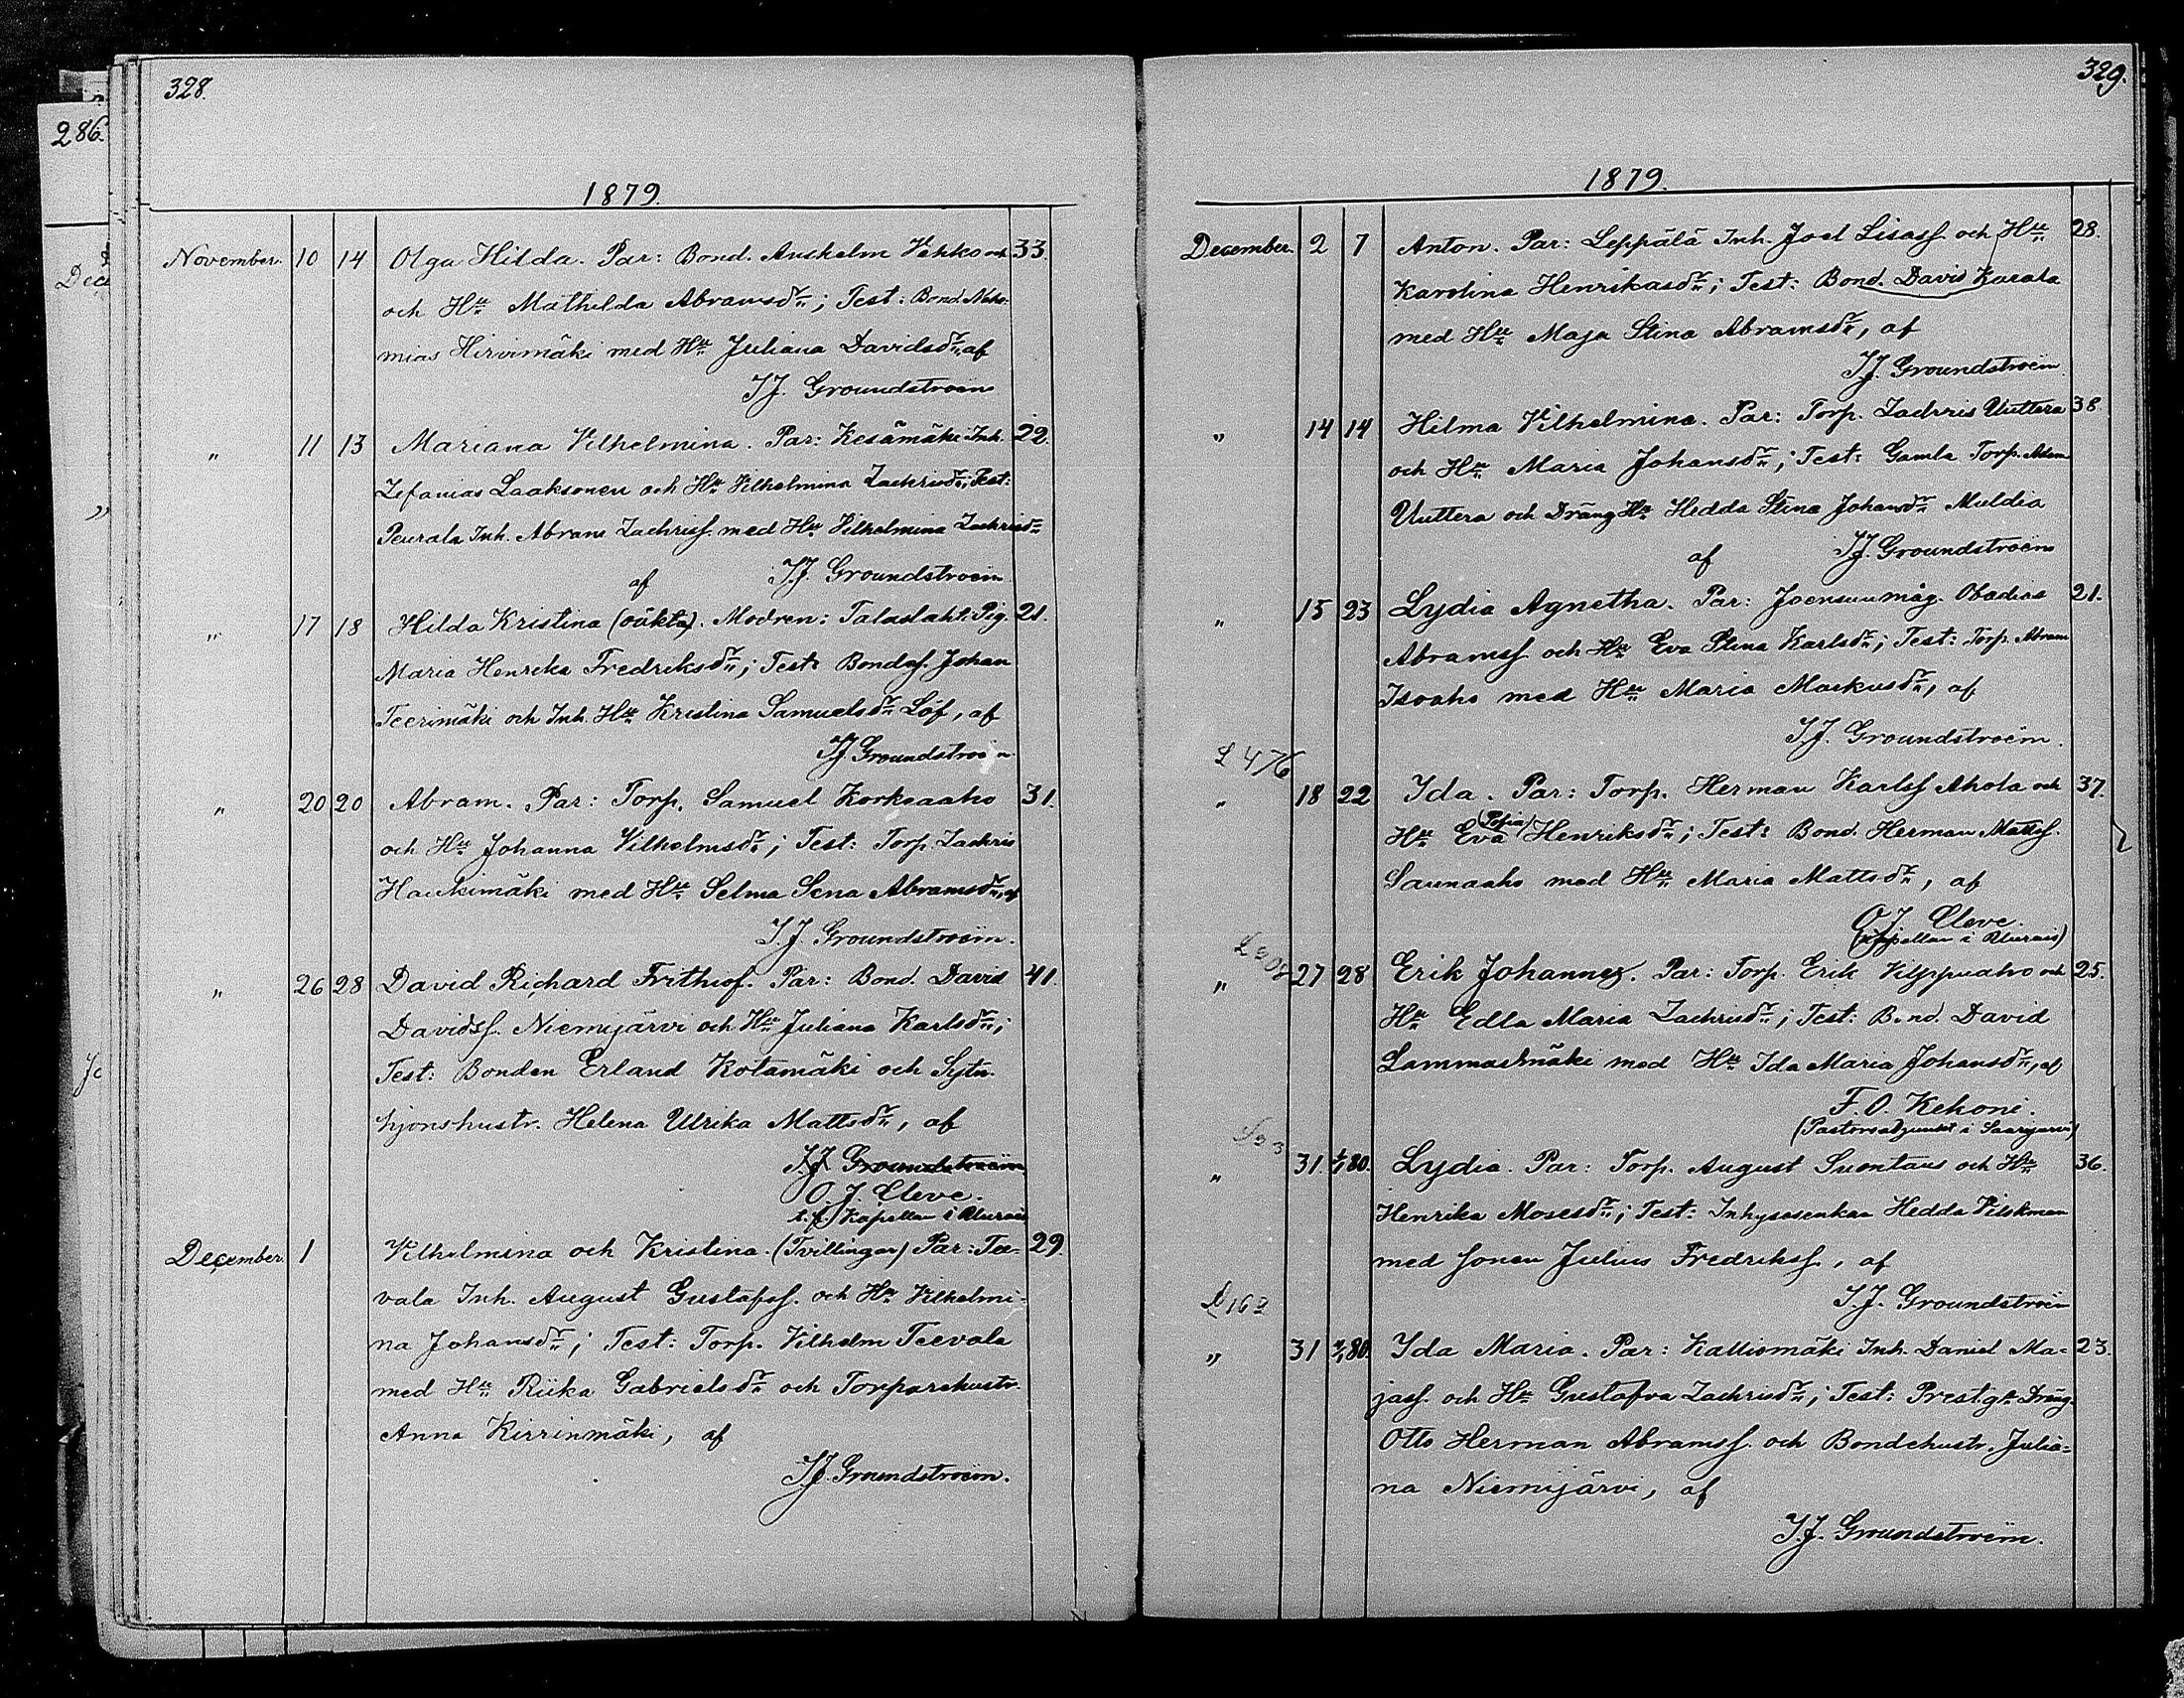 328.
286.
1879.
November. 10 14 Olga Hilda. Par: Bond. Anshelm Vehko och 33.
och Hu Mathilda Abramsdr; Test: Bond. Nehe-
mias Hirvimäki med Hu Juliana Davidsdr, af
J.J. Groundstroëm
" 11 13 Mariana Vilhelmina. Par: Kesämäki Inh. 22.
Zefanias Laaksonen och Hu Vilhelmina Zachrisdr; Test:
Peurala Inh. Abram Zachriss. med Hu Vilhelmina Zachrisdr
af J.J. Groundstroëm
" 17 18 Hilda Kristina (oäkta). Modren: Talaslahti Pig. 21.
Maria Henrika Fredriksdr; Test: Bondes. Johan
Teerimäki och Inh. Hu Kristina Samuelsdr Löf, af
J.J. Groundstroëm
" 20 20 Abram. Par: Torp. Samuel Korkeaaho 31.
och Hu Johanna Vilhelmsdr; Test: Torp. Zachris
Haukimäki med Hu Selma Sena Abramsdr, af
J.J. Groundstroëm.
" 26 28 David Richard Frithiof. Par: Bond. David 41.
Davidss. Niemijärvi och Hu Juliana Karlsdr;
Test: Bonden Erland Kotamäki och Sytn.
hjonshustr. Helena Ulrika Mattsdr, af
J.J. Groundstroëm
O. J. Cleve.
t.f. Kapellan i Alurais
December. 1 Vilhelmina och Kristina. (Tvillingar) Par: Tee- 29.
vala Inh. August Gustafss. och Hu Vilhelmi-
na Johansdr; Test: Torp. Vilhelm Teevala
med Hu Riika Gabrielsdr och Torparehustr.
Anna Kirrinmäki, af
J.J. Groundstroëm.
329.
1879.
December. 2 7 Anton. Par: Leppälä Inh. Joel Lisass. och Hu 28.
Karolina Henrikasdr; Test: Bond. David Karala
med Hu Maja Stina Abramsdr, af
J.J. Groundstroëm
" 14 14 Hilma Vilhelmina. Par: Torp. Zachris Uuttera 38.
och Hu Maria Johansdr; Test: Gamla Torp. Adam
Uuttera och Dräng Hu Hedda Stina Johansdr Muldia
af J.J. Groundstroëm
" 15 23 Lydia Agnetha. Par: Joensuu måg. Obadias 21.
Abramss och Hu Eva Stina Karlsdr; Test: Torp. Abram
Isoaho med Hu Maria Markusdr, af
J.J. Groundstroëm.
L 476
" 18 22 Ida. Par: Torp. Herman Karlss Ahola och 37.
Hu Eva (Sofia) Henriksdr; Test: Bond. Herman Mattss.
Saunaaho med Hu Maria Mattsdr, af
O J Cleve.
(Kapellan i Alurais)
" 27 28 Erik Johannes. Par: Torp. Erik Vilppuaho och 25.
Hu Edla Maria Zachrisdr; Test: Bond. David
Lammasmäki med Hu Ida Maria Johansdr, af
F. O. Kekoni.
(Pastorsadjunkt i Saarijärvi)
" 31. 1/1 80. Lydia. Par: Torp. August Suontaus och Hu 36.
Henrika Mosesdr; Test: Inhysesenkan Hedda Vilskman
med sonen Julius Fredrikss., af
J.J. Groundstroëm
L 162
" 31 80. Ida Maria. Par: Kalliomäki Inh. Daniel Ma- 23.
jass. och Hu Gustafva Zachrisdr; Test: Prestgds Dräng.
Otto Herman Abramss. och Bondehustr. Julia-
na Niemijärvi, af
J.J. Groundstroëm.